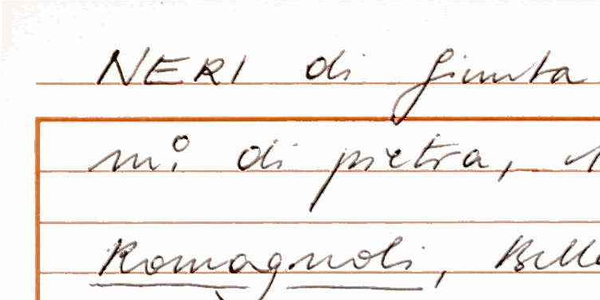 NERI di Giunta
m° di pietra,
Romagnoli,